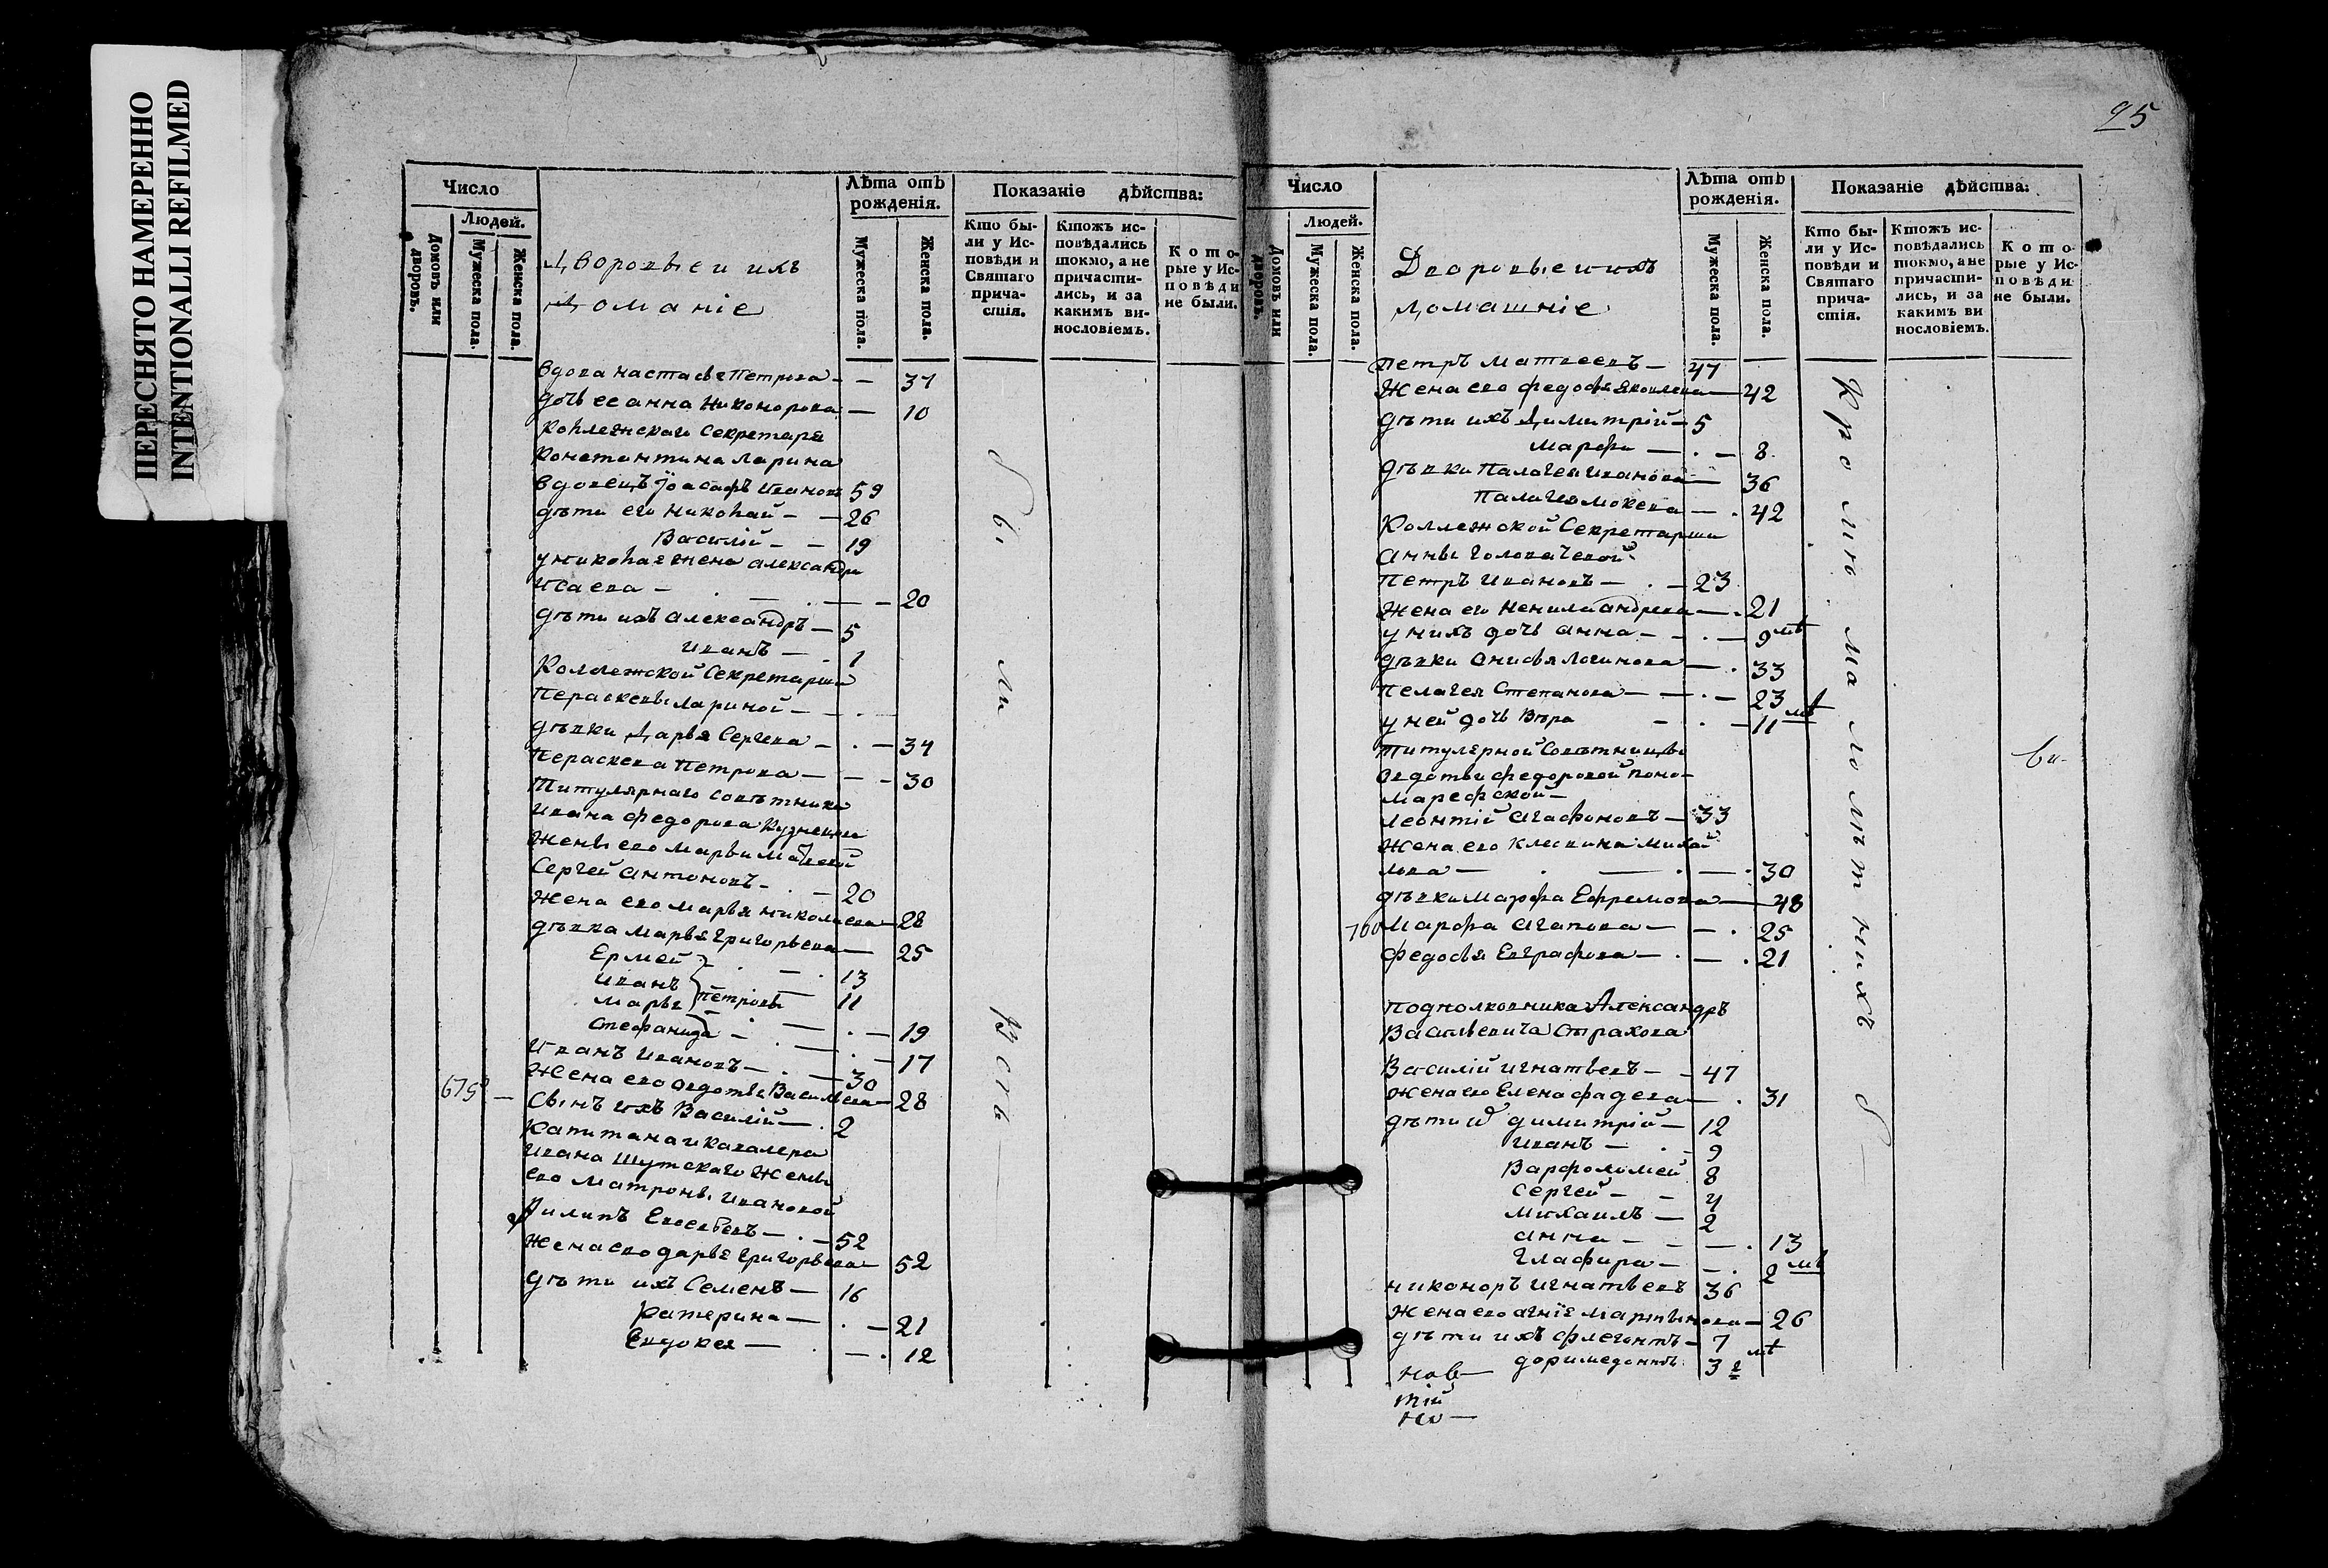 ПЕРЕСНЯТО НАМЕРЕННО
INTENTIONALLI REFILMED
Число
Людей.
Домовъ или дворовъ.
Мужеска пола.
Женска пола.
Дворовыеи ихъ
Доманіе
Лѣта отъ рожденія.
Мужеска пола.
Женска пола.
Показаніе дѣйства:
Кто бы-
ли у Ис-
повѣди и
Святаго
прича-
стія.
Ктожъ ис-
повѣдались
токмо, а не
причасти-
лись, и за
какимъ ви-
нословіемъ.
Кото-
рые у Ис-
повѣди
не были.
вдова настасья Петрова — — 37
дочь ее анна Никонорова — 10
Коллежскаго Секретаря
Константина Ларина
вдовецъ Іоасафъ Ивановъ 59
дѣти его Николай — — 26
Василій — — 19
у николая жена александра
Исаева — — 20
дѣти ихъ александръ — 5
иванъ — 1
Коллежской Секретарши
Перасковьи Лариной —
дѣвки Дарья Сергеева — 34
Пераскева Петрова — — 30
Титулярнаго совѣтника
Ивана федорова Кузнецова
жены ево марьи
Сергей антоновъ — 20
жена ево марья николаева — 28
дѣвка марья григорьева — 25
Ермей — 13
иванъ петровы 11
марья — 19
стефанида — 17
иванъ ивановъ — 30
жена ево авдотья Васильева — 28
675 — сынъ ихъ Василій — 2
Капитана и кавалера
ивана Шутскаго жены
ево матроны ивановой
филипъ Евсевьевъ — 52
жена ево дарья григорьева — 52
дѣти ихъ Семенъ — 16
катерина — 21
Евдокея — 12
бы
ли
всѣ
95
Число
Людей.
Домовъ или дворовъ.
Мужеска пола.
Женска пола.
Дворовые и ихъ
домашніе
Лѣта отъ рожденія.
Мужеска пола.
Женска пола.
Показаніе дѣйства:
Кто бы-
ли у Ис-
повѣди и
Святаго
прича-
стія.
Ктожъ ис-
повѣдались
токмо, а не
причасти-
лись, и за
какимъ ви
нословіемъ.
Кото-
рые у Ис-
повѣди
не были.
петръ матвеевъ — 47
жена ево федосья яковлева — 42
дѣти ихъ Димитрій — 5
марфа — 8
дѣвки палагея иванова — 36
палагея мокева — 42
Коллежской Секретарши
анны головачевой
петръ ивановъ — 23
жена его ненила андреева — 21
у нихъ дочь анна — 9 мѣ
дѣвки анисья логинова — 33
пелагея Степанова — 23
у ней дочь Вѣра — 11 мѣ
титулярной Совѣтницы
авдотьи федоровой поно-
марефской —
леонтій агафоновъ — 33
жена его михай
лова — 30
дѣвки марфа Ефремова — 48
700 марфа агапова — 25
федосья Евграфова — 21
подполковника Александръ
Васильевича Страхова
Василій игнатьевъ — 47
жена ево Елена фадеева — 31
дѣти димитрій — 12
иванъ — 9
Варфоломей 8
сергей — 4
михаилъ — 2
анна — 13
глафира — 2 мѣ
никоноръ игнатьевъ 36
жена ево агнія мартынова — 26
дѣти ихъ флегонтъ — 7
доримедонтъ 3
Кро мю ма ло лѣт нихъ